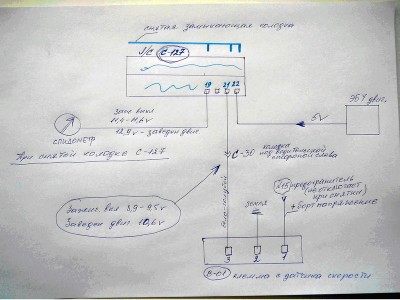 снятая замыкающая колодка
J/C С-127
19 21 22
Зажг вкл
11,4-11,6v
12,9v - заведён двиг.
СПИДОМЕТР
При снятой колодке С-127
5v
ЭБУ двиг.
С-30 колодка
под водительской
опорой слева
Зажиг. вкл 8,9-9,5v
Заведён двиг 10,6v
земля
предохранитель
(не отключает
при снятии)
+ борт напряжение
3 2 1
В-01 клемма с датчика скорости